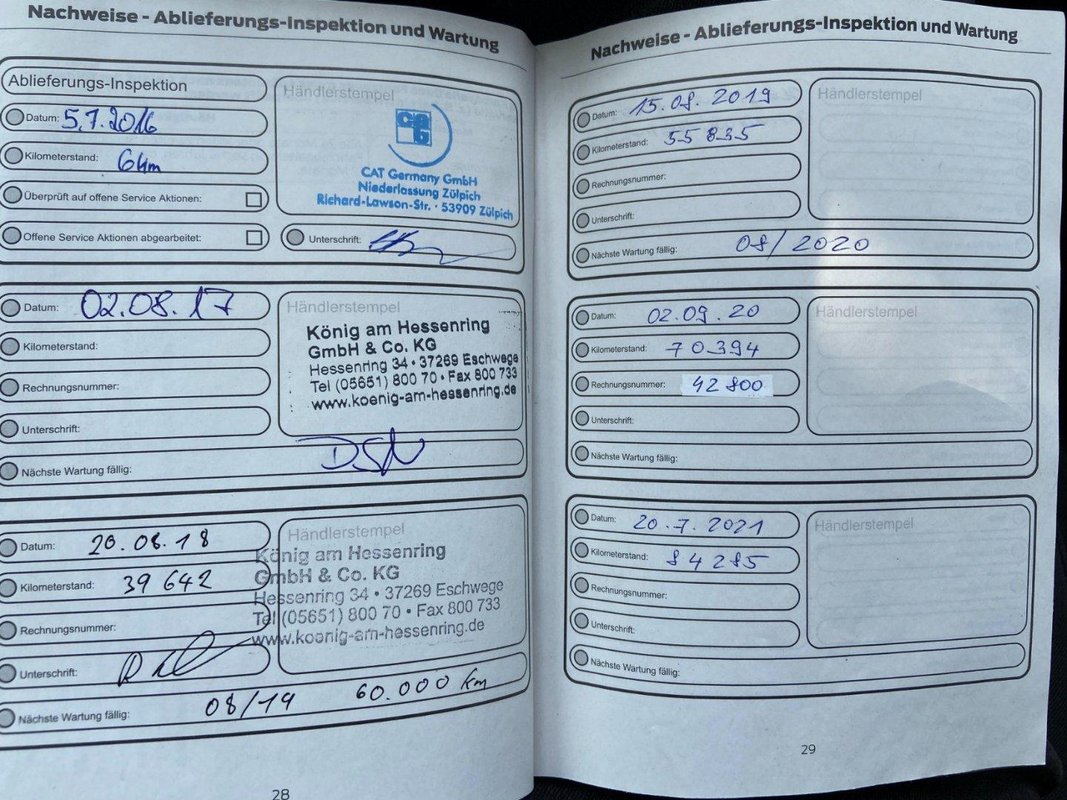 Nachweise - Ablieferungs-Inspektion und Wartung
Ablieferungs-Inspektion
Datum: 5.7.2016
Kilometerstand: 6 km
Überprüft auf offene Service Aktionen:
Offene Service Aktionen abgearbeitet:
Händlerstempel
CAT Germany GmbH
Niederlassung Zülpich
Richard-Lawson-Str. · 53909 Zülpich
Unterschrift:
Datum: 02.08.17
Kilometerstand:
Rechnungsnummer:
Unterschrift:
Nächste Wartung fällig:
Händlerstempel
König am Hessenring
GmbH & Co. KG
Hessenring 34 • 37269 Eschwege
Tel (05651) 800 70 • Fax 800 733
www.koenig-am-hessenring.de
Datum: 20.08.18
Kilometerstand: 39 642
Rechnungsnummer:
Unterschrift:
Nächste Wartung fällig: 08/19 60.000 km
Händlerstempel
König am Hessenring
GmbH & Co. KG
Hessenring 34 • 37269 Eschwege
Tel (05651) 800 70 • Fax 800 733
www.koenig-am-hessenring.de
28
Nachweise - Ablieferungs-Inspektion und Wartung
Datum: 15.08.2019
Kilometerstand: 55835
Rechnungsnummer:
Unterschrift:
Nächste Wartung fällig: 08/2020
Händlerstempel
Datum: 02.09.20
Kilometerstand: 70394
Rechnungsnummer: 42800
Unterschrift:
Nächste Wartung fällig:
Händlerstempel
Datum: 20.7.2021
Kilometerstand: 84285
Rechnungsnummer:
Unterschrift:
Nächste Wartung fällig:
Händlerstempel
29